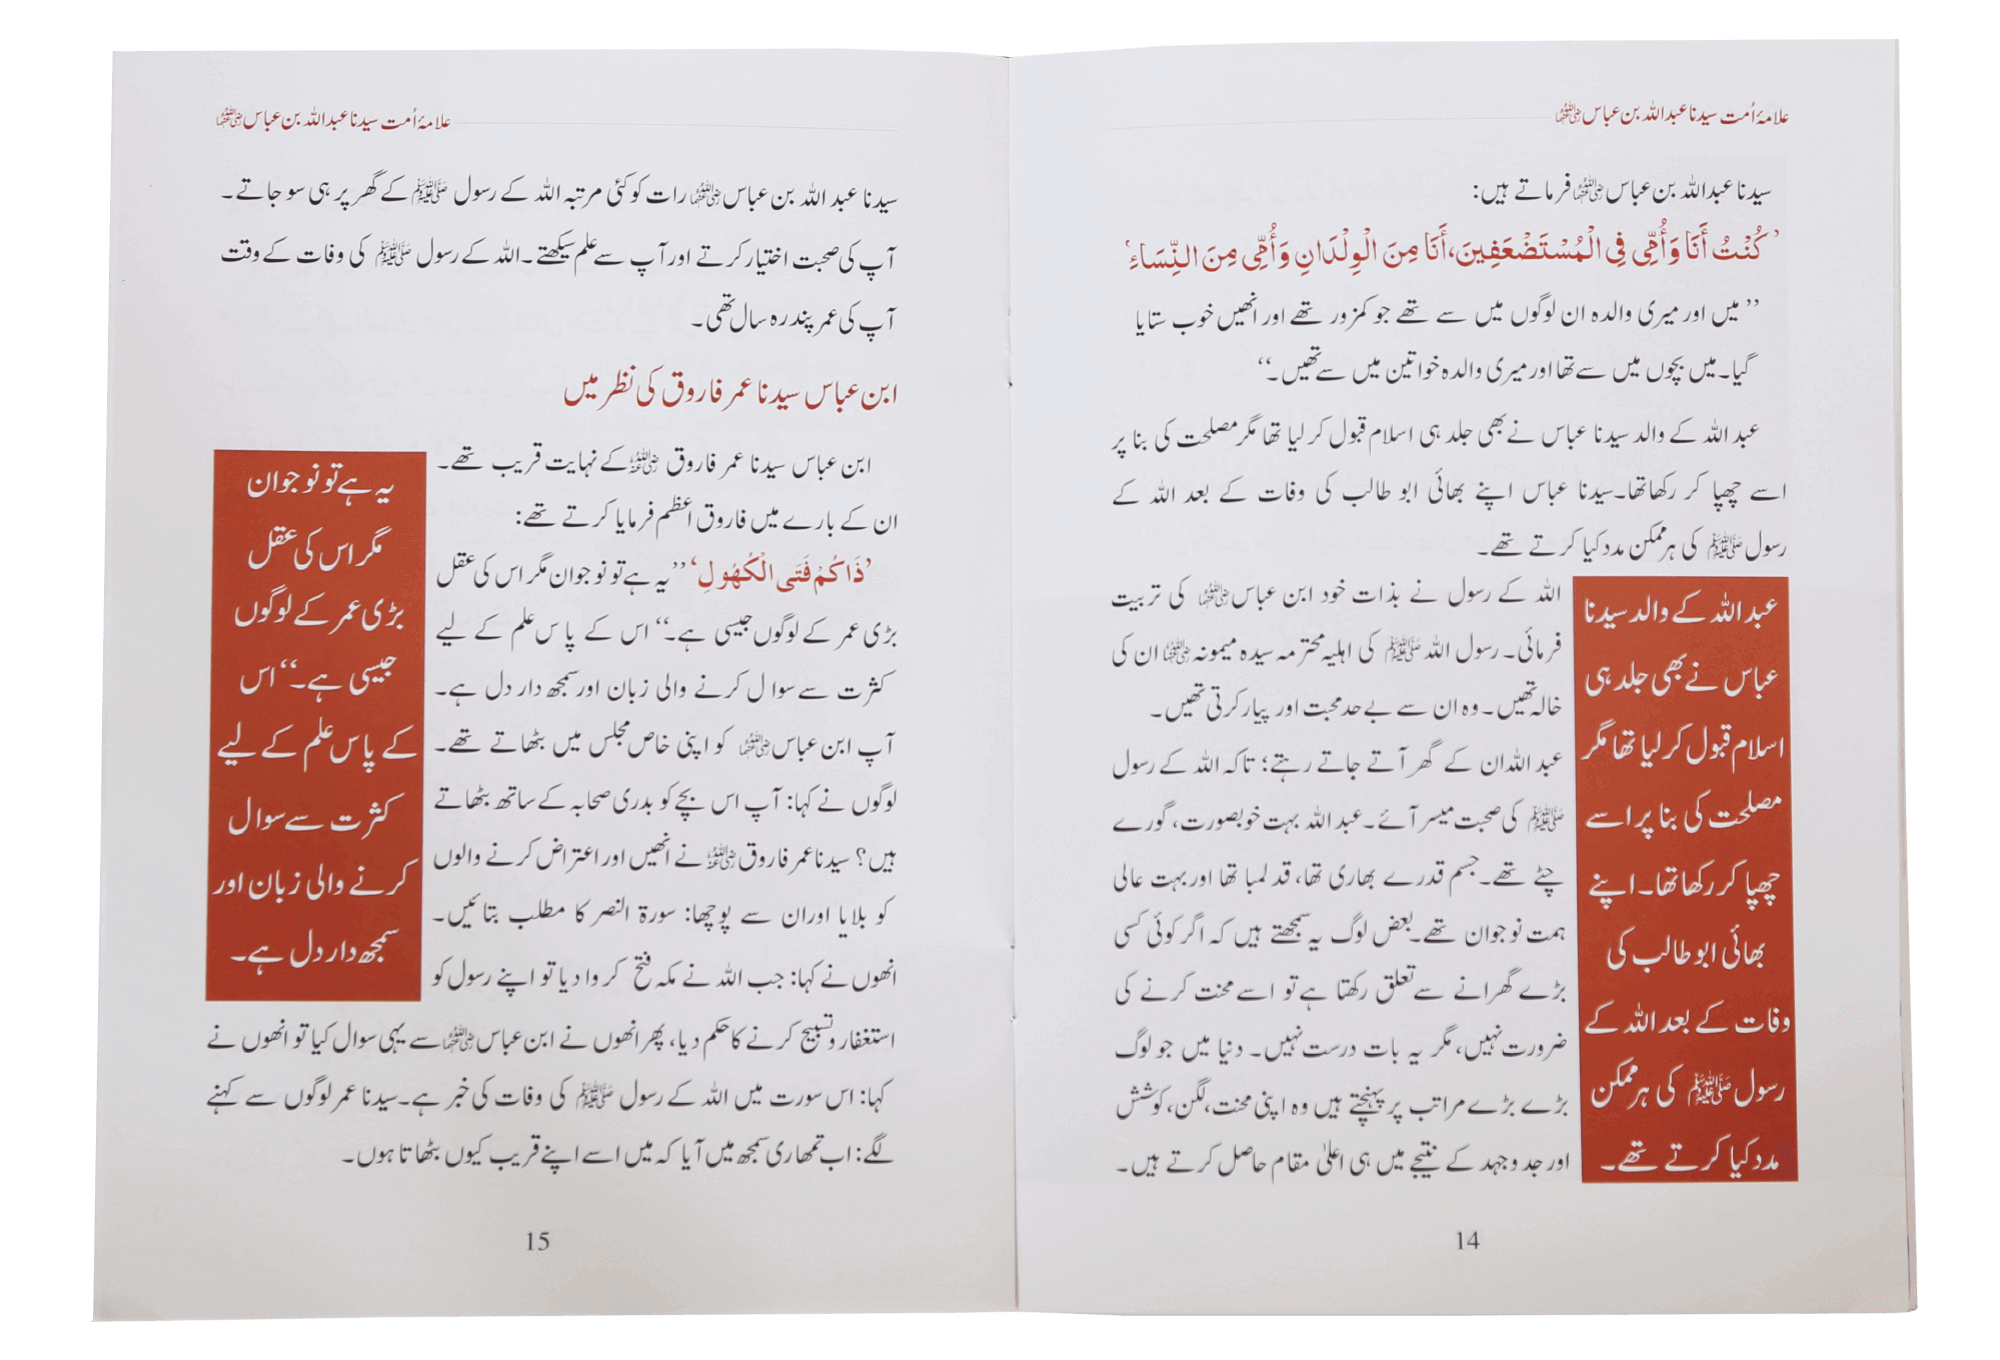 علامۂ اُمت سیدنا عبداللہ بن عباس رضی اللہ عنہما
سیدنا عبداللہ بن عباس رضی اللہ عنہما فرماتے ہیں:
’كُنْتُ أَنَا وَأُمِّی فِی الْمُسْتَضْعَفِینَ، أَنَا مِنَ الْوِلْدَانِ وَأُمِّی مِنَ النِّسَاءِ‘
’’میں اور میری والدہ ان لوگوں میں سے تھے جو کمزور تھے اور انھیں خوب ستایا
گیا۔ میں بچوں میں سے تھا اور میری والدہ خواتین میں سے تھیں۔‘‘
عبداللہ کے والد سیدنا عباس نے بھی جلد ہی اسلام قبول کر لیا تھا مگر مصلحت کی بنا پر
اسے چھپا کر رکھا تھا۔ سیدنا عباس اپنے بھائی ابو طالب کی وفات کے بعد اللہ کے
رسول ﷺ کی ہر ممکن مدد کیا کرتے تھے۔
اللہ کے رسول نے بذات خود ابن عباس رضی اللہ عنہما کی تربیت
فرمائی۔ رسول اللہ ﷺ کی اہلیہ محترمہ سیدہ میمونہ رضی اللہ عنہا ان کی
خالہ تھیں۔ وہ ان سے بے حد محبت اور پیار کرتی تھیں۔
عبداللہ ان کے گھر آتے جاتے رہتے؛ تاکہ اللہ کے رسول
ﷺ کی صحبت میسر آئے۔ عبداللہ بہت خوبصورت، گورے
چٹے تھے۔ جسم قدرے بھاری تھا، قد لمبا تھا اور بہت عالی
ہمت نوجوان تھے۔ بعض لوگ یہ سمجھتے ہیں کہ اگر کوئی کسی
بڑے گھرانے سے تعلق رکھتا ہے تو اسے محنت کرنے کی
ضرورت نہیں، مگر یہ بات درست نہیں۔ دنیا میں جو لوگ
بڑے بڑے مراتب پر پہنچتے ہیں وہ اپنی محنت، لگن، کوشش
اور جد و جہد کے نتیجے میں ہی اعلیٰ مقام حاصل کرتے ہیں۔
عبداللہ کے والد سیدنا
عباس نے بھی جلد ہی
اسلام قبول کر لیا تھا مگر
مصلحت کی بنا پر اسے
چھپا کر رکھا تھا۔ اپنے
بھائی ابو طالب کی
وفات کے بعد اللہ کے
رسول ﷺ کی ہر ممکن
مدد کیا کرتے تھے۔
14
علامۂ اُمت سیدنا عبداللہ بن عباس رضی اللہ عنہما
سیدنا عبد اللہ بن عباس رضی اللہ عنہما رات کو کئی مرتبہ اللہ کے رسول ﷺ کے گھر پر ہی سو جاتے۔
آپ کی صحبت اختیار کرتے اور آپ سے علم سیکھتے۔ اللہ کے رسول ﷺ کی وفات کے وقت
آپ کی عمر پندرہ سال تھی۔
ابن عباس سیدنا عمر فاروق کی نظر میں
ابن عباس سیدنا عمر فاروق رضی اللہ عنہ کے نہایت قریب تھے۔
ان کے بارے میں فاروق اعظم فرمایا کرتے تھے:
’ذَاكُمْ فَتَی الْكُهُولِ‘ ’’یہ ہے تو نوجوان مگر اس کی عقل
بڑی عمر کے لوگوں جیسی ہے۔‘‘ اس کے پاس علم کے لیے
کثرت سے سوال کرنے والی زبان اور سمجھ دار دل ہے۔
آپ ابن عباس رضی اللہ عنہما کو اپنی خاص مجلس میں بٹھاتے تھے۔
لوگوں نے کہا: آپ اس بچے کو بدری صحابہ کے ساتھ بٹھاتے
ہیں؟ سیدنا عمر فاروق رضی اللہ عنہ نے انھیں اور اعتراض کرنے والوں
کو بلایا اور ان سے پوچھا: سورۃ النصر کا مطلب بتائیں۔
انھوں نے کہا: جب اللہ نے مکہ فتح کروا دیا تو اپنے رسول کو
استغفار و تسبیح کرنے کا حکم دیا، پھر انھوں نے ابن عباس رضی اللہ عنہما سے یہی سوال کیا تو انھوں نے
کہا: اس سورت میں اللہ کے رسول ﷺ کی وفات کی خبر ہے۔ سیدنا عمر لوگوں سے کہنے
لگے: اب تمھاری سمجھ میں آیا کہ میں اسے اپنے قریب کیوں بٹھاتا ہوں۔
یہ ہے تو نوجوان
مگر اس کی عقل
بڑی عمر کے لوگوں
جیسی ہے۔‘‘ اس
کے پاس علم کے لیے
کثرت سے سوال
کرنے والی زبان اور
سمجھ دار دل ہے۔
15